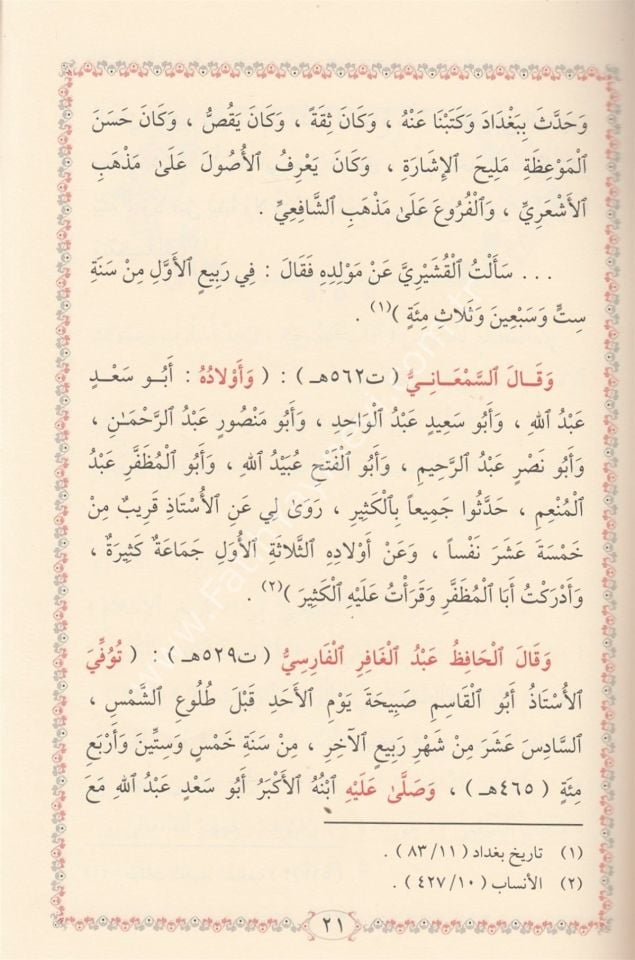 وَحَدَّثَ بِبَغْدَادَ وَكَتَبْنَا عَنْهُ ، وَكَانَ ثِقَةً ، وَكَانَ يَقُصُّ ، وَكَانَ حَسَنَ
ٱلْمَوْعِظَةِ مَلِيحَ ٱلْإِشَارَةِ ، وَكَانَ يَعْرِفُ ٱلْأُصُولَ عَلَىٰ مَذْهَبِ
ٱلْأَشْعَرِيِّ ، وَٱلْفُرُوعَ عَلَىٰ مَذْهَبِ ٱلشَّافِعِيِّ .
... سَأَلْتُ ٱلْقُشَيْرِيَّ عَنْ مَوْلِدِهِ فَقَالَ : فِي رَبِيعٍ ٱلْأَوَّلِ مِنْ سَنَةِ
سِتٍّ وَسَبْعِينَ وَثَلَاثِ مِئَةٍ )(١) .
وَقَالَ ٱلسَّمْعَانِيُّ ( ت٥٦٢هـ ) : ( وَأَوْلَادُهُ : أَبُو سَعْدٍ
عَبْدُ ٱللهِ ، وَأَبُو سَعِيدٍ عَبْدُ ٱلْوَاحِدِ ، وَأَبُو مَنْصُورٍ عَبْدُ ٱلرَّحْمَـٰنِ ،
وَأَبُو نَصْرٍ عَبْدُ ٱلرَّحِيمِ ، وَأَبُو ٱلْفَتْحِ عُبَيْدُ ٱللهِ ، وَأَبُو ٱلْمُظَفَّرِ عَبْدُ
ٱلْمُنْعِمِ ، حَدَّثُوا جَمِيعاً بِٱلْكَثِيرِ ، رَوَىٰ لِي عَنِ ٱلْأُسْتَاذِ قَرِيبٌ مِنْ
خَمْسَةَ عَشَرَ نَفْساً ، وَعَنْ أَوْلَادِهِ ٱلثَّلَاثَةِ ٱلْأُوَلِ جَمَاعَةٌ كَثِيرَةٌ ،
وَأَدْرَكْتُ أَبَا ٱلْمُظَفَّرِ وَقَرَأْتُ عَلَيْهِ ٱلْكَثِيرَ )(٢) .
وَقَالَ ٱلْحَافِظُ عَبْدُ ٱلْغَافِرِ ٱلْفَارِسِيُّ ( ت٥٢٩هـ ) : ( تُوُفِّيَ
ٱلْأُسْتَاذُ أَبُو ٱلْقَاسِمِ صَبِيحَةَ يَوْمِ ٱلْأَحَدِ قَبْلَ طُلُوعِ ٱلشَّمْسِ ،
ٱلسَّادِسَ عَشَرَ مِنْ شَهْرِ رَبِيعٍ ٱلْآخِرِ ، مِنْ سَنَةِ خَمْسٍ وَسِتِّينَ وَأَرْبَعِ
مِئَةٍ ( ٤٦٥هـ ) ، وَصَلَّىٰ عَلَيْهِ ٱبْنُهُ ٱلْأَكْبَرُ أَبُو سَعْدٍ عَبْدُ ٱللهِ مَعَ
(١) تاريخ بغداد ( ١١/ ٨٣ ) .
(٢) الأنساب ( ١٠/ ٤٢٧ ) .
٢١